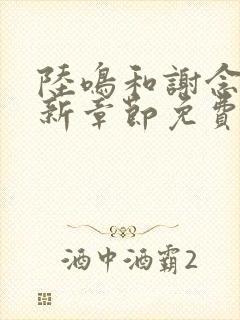 陸鳴和謝念
新章節免費
酒中酒霸2